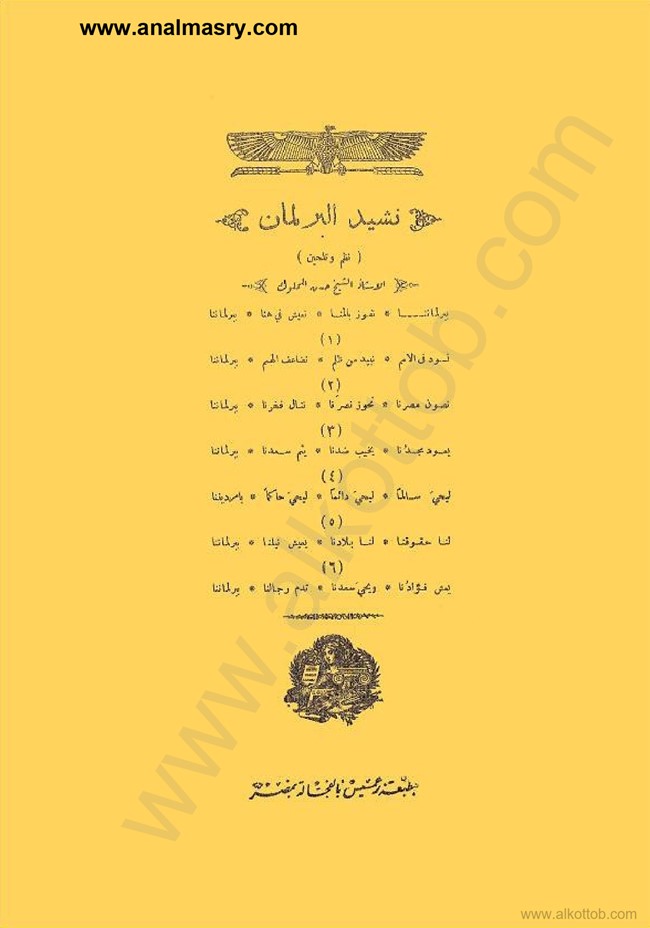 www.analmasry.com
نشيد البرلمان
( نظم وتلحين )
الاستاذ الشيخ حسن المملوك
برلماننـــــا * نفوز بالمنـا * نعيش في هنا * ببرلماننا
(١)
نسود في الامم * نبيد من ظلم * نضاعف الهمم * ببرلماننا
(٢)
نصون مصرنا * نحوز نصرَنا * ننال فخرنا * ببرلماننا
(٣)
يعود مجدُنا * يخيب ضدنا * يتم سـعدنا * ببرلماننا
(٤)
ليحيَ سـالماً * ليحيَ دائماً * ليحيَ حاكماً
(٥)
لنا حقوقنا * لنـا بلادنا * يعيش نيلنا * ببرلماننا
(٦)
يعش فـؤادُنا * ويحيَ سعدنا * تدم رجالنا * ببرلماننا
مطبعة رعمسيس بالفجالة بمصر
www.alkottob.com
www.alkottob.com